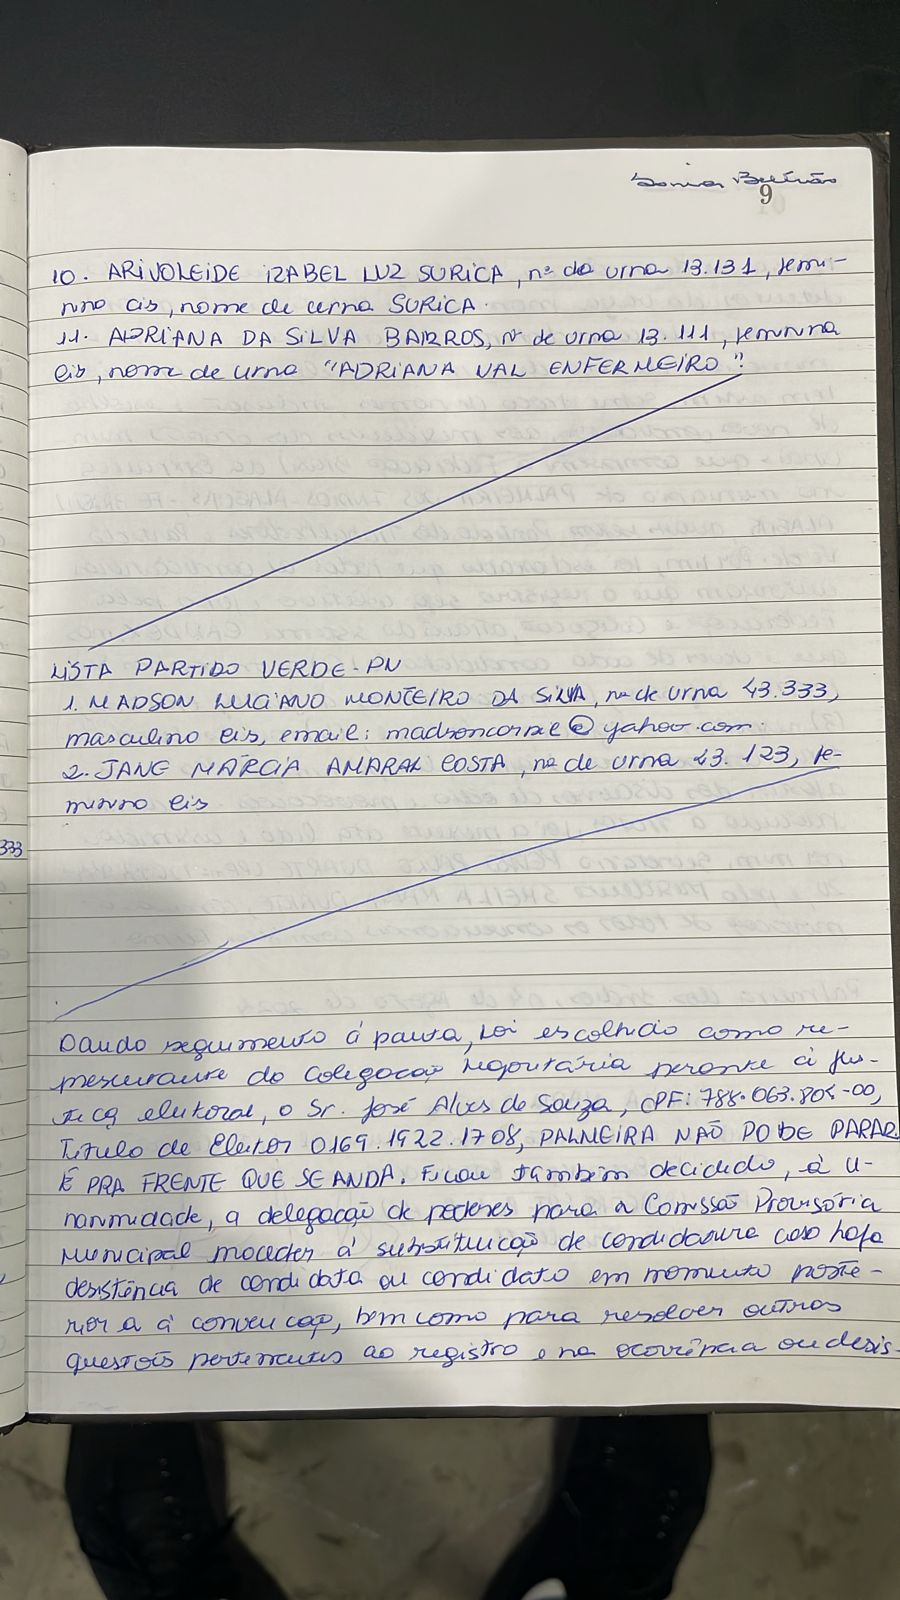 Sonia Beltrão
9
10. ARIVOLEIDE IZABEL LUZ SURICA, nº da urna 13.131, femi-
nino cis, nome de urna SURICA.
11. ADRIANA DA SILVA BARROS, nº de urna 13.111, feminina
cis, nome de urna "ADRIANA VAL ENFERMEIRO".
LISTA PARTIDO VERDE-PV
1. MADSON LUCIANO MONTEIRO DA SILVA, nº de urna 43.333,
masculino cis, email: @yahoo.com.
2. JANE MÁRCIA AMARAL COSTA, nº de urna 43.123, fe-
minino cis
333
Dando seguimento à pauta, foi escolhido como re-
presentante da Coligação Majoritária perante a jus-
tiça eleitoral, o Sr. José Alves de Souza, CPF: 788.063.804-00,
Título de Eleitor 0169.1922.1708, PALMEIRA NÃO PODE PARAR
É PRA FRENTE QUE SE ANDA. Ficou também decidido, à u-
nanimidade, a delegação de poderes para a Comissão Provisória
Municipal proceder à substituição de candidatura caso haja
desistência de candidata ou candidato em momento poste-
rior a à convenção, bem como para resolver outras
questões pertinentes ao registro e na ocorrência ou desis-